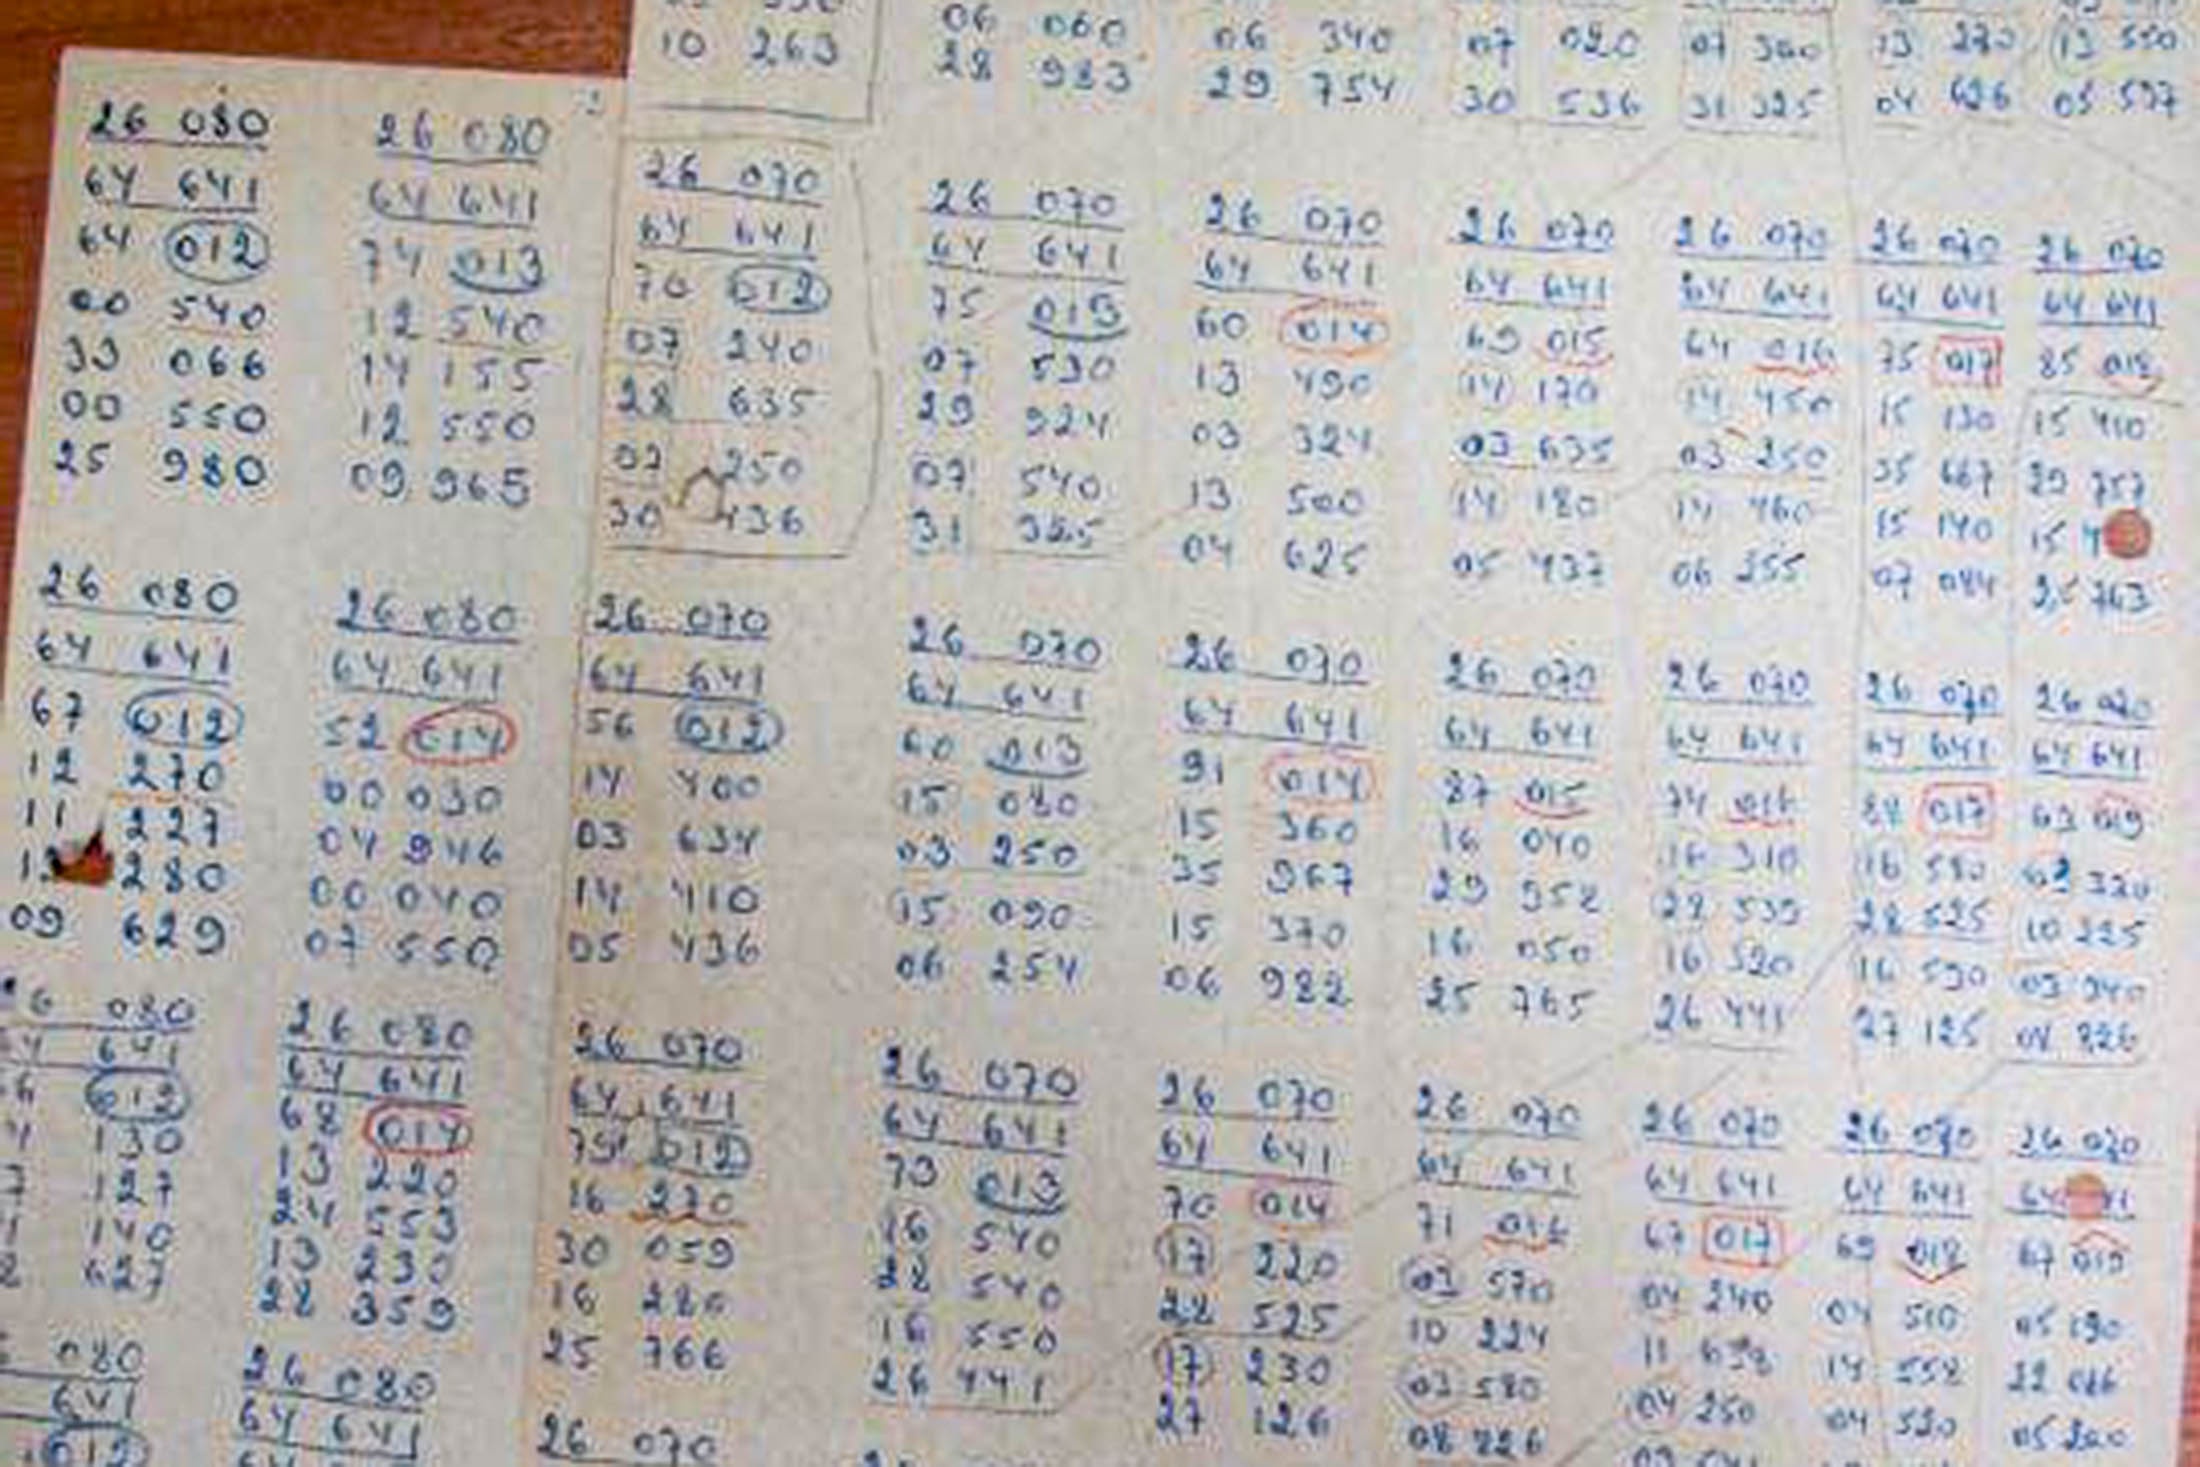 10 263
06 060
28 983
06 340
29 754
07 020
30 536
07 360
31 325
13 270
04 626
13 550
05 537
26 080
64 641
64 012
00 540
33 066
00 550
25 980
26 080
64 641
74 013
12 540
14 155
12 550
09 965
26 070
64 641
70 012
07 240
28 635
07 250
30 436
26 070
64 641
75 013
07 530
29 924
07 540
31 325
26 070
64 641
60 014
13 490
03 324
13 500
04 625
26 070
64 641
69 015
14 170
03 635
14 180
05 437
26 070
64 641
64 016
14 450
03 250
14 460
06 255
26 070
64 641
75 017
15 130
35 667
15 140
07 084
26 070
64 641
85 018
15 410
29 757
15 4
25 763
26 080
64 641
67 012
12 270
11 227
280
09 629
26 080
64 641
52 014
00 030
04 946
00 040
07 550
26 070
64 641
56 012
14 400
03 634
14 410
05 436
26 070
64 641
60 013
15 080
03 250
15 090
06 254
26 070
64 641
91 014
15 360
35 967
15 370
06 982
26 070
64 641
87 015
16 040
29 958
16 050
25 765
26 070
64 641
74 016
16 310
28 539
16 320
26 441
26 070
64 641
88 017
16 580
28 525
16 590
27 125
26 070
64 641
63 019
03 330
10 225
03 340
08 826
080
641
012
130
127
140
627
26 080
64 641
68 014
13 220
24 553
13 230
28 359
26 070
64 641
79 012
16 270
30 059
16 280
25 766
26 070
64 641
73 013
16 540
28 540
16 550
26 441
26 070
64 641
70 014
17 220
28 525
17 230
27 126
26 070
64 641
71 016
03 570
10 224
03 580
08 826
26 070
64 641
67 017
04 240
11 638
04 250
26 070
64 641
69 018
04 510
14 558
04 520
26 070
64 41
67 019
05 190
22 086
05 200
080
641
012
26 080
64 641
26 070